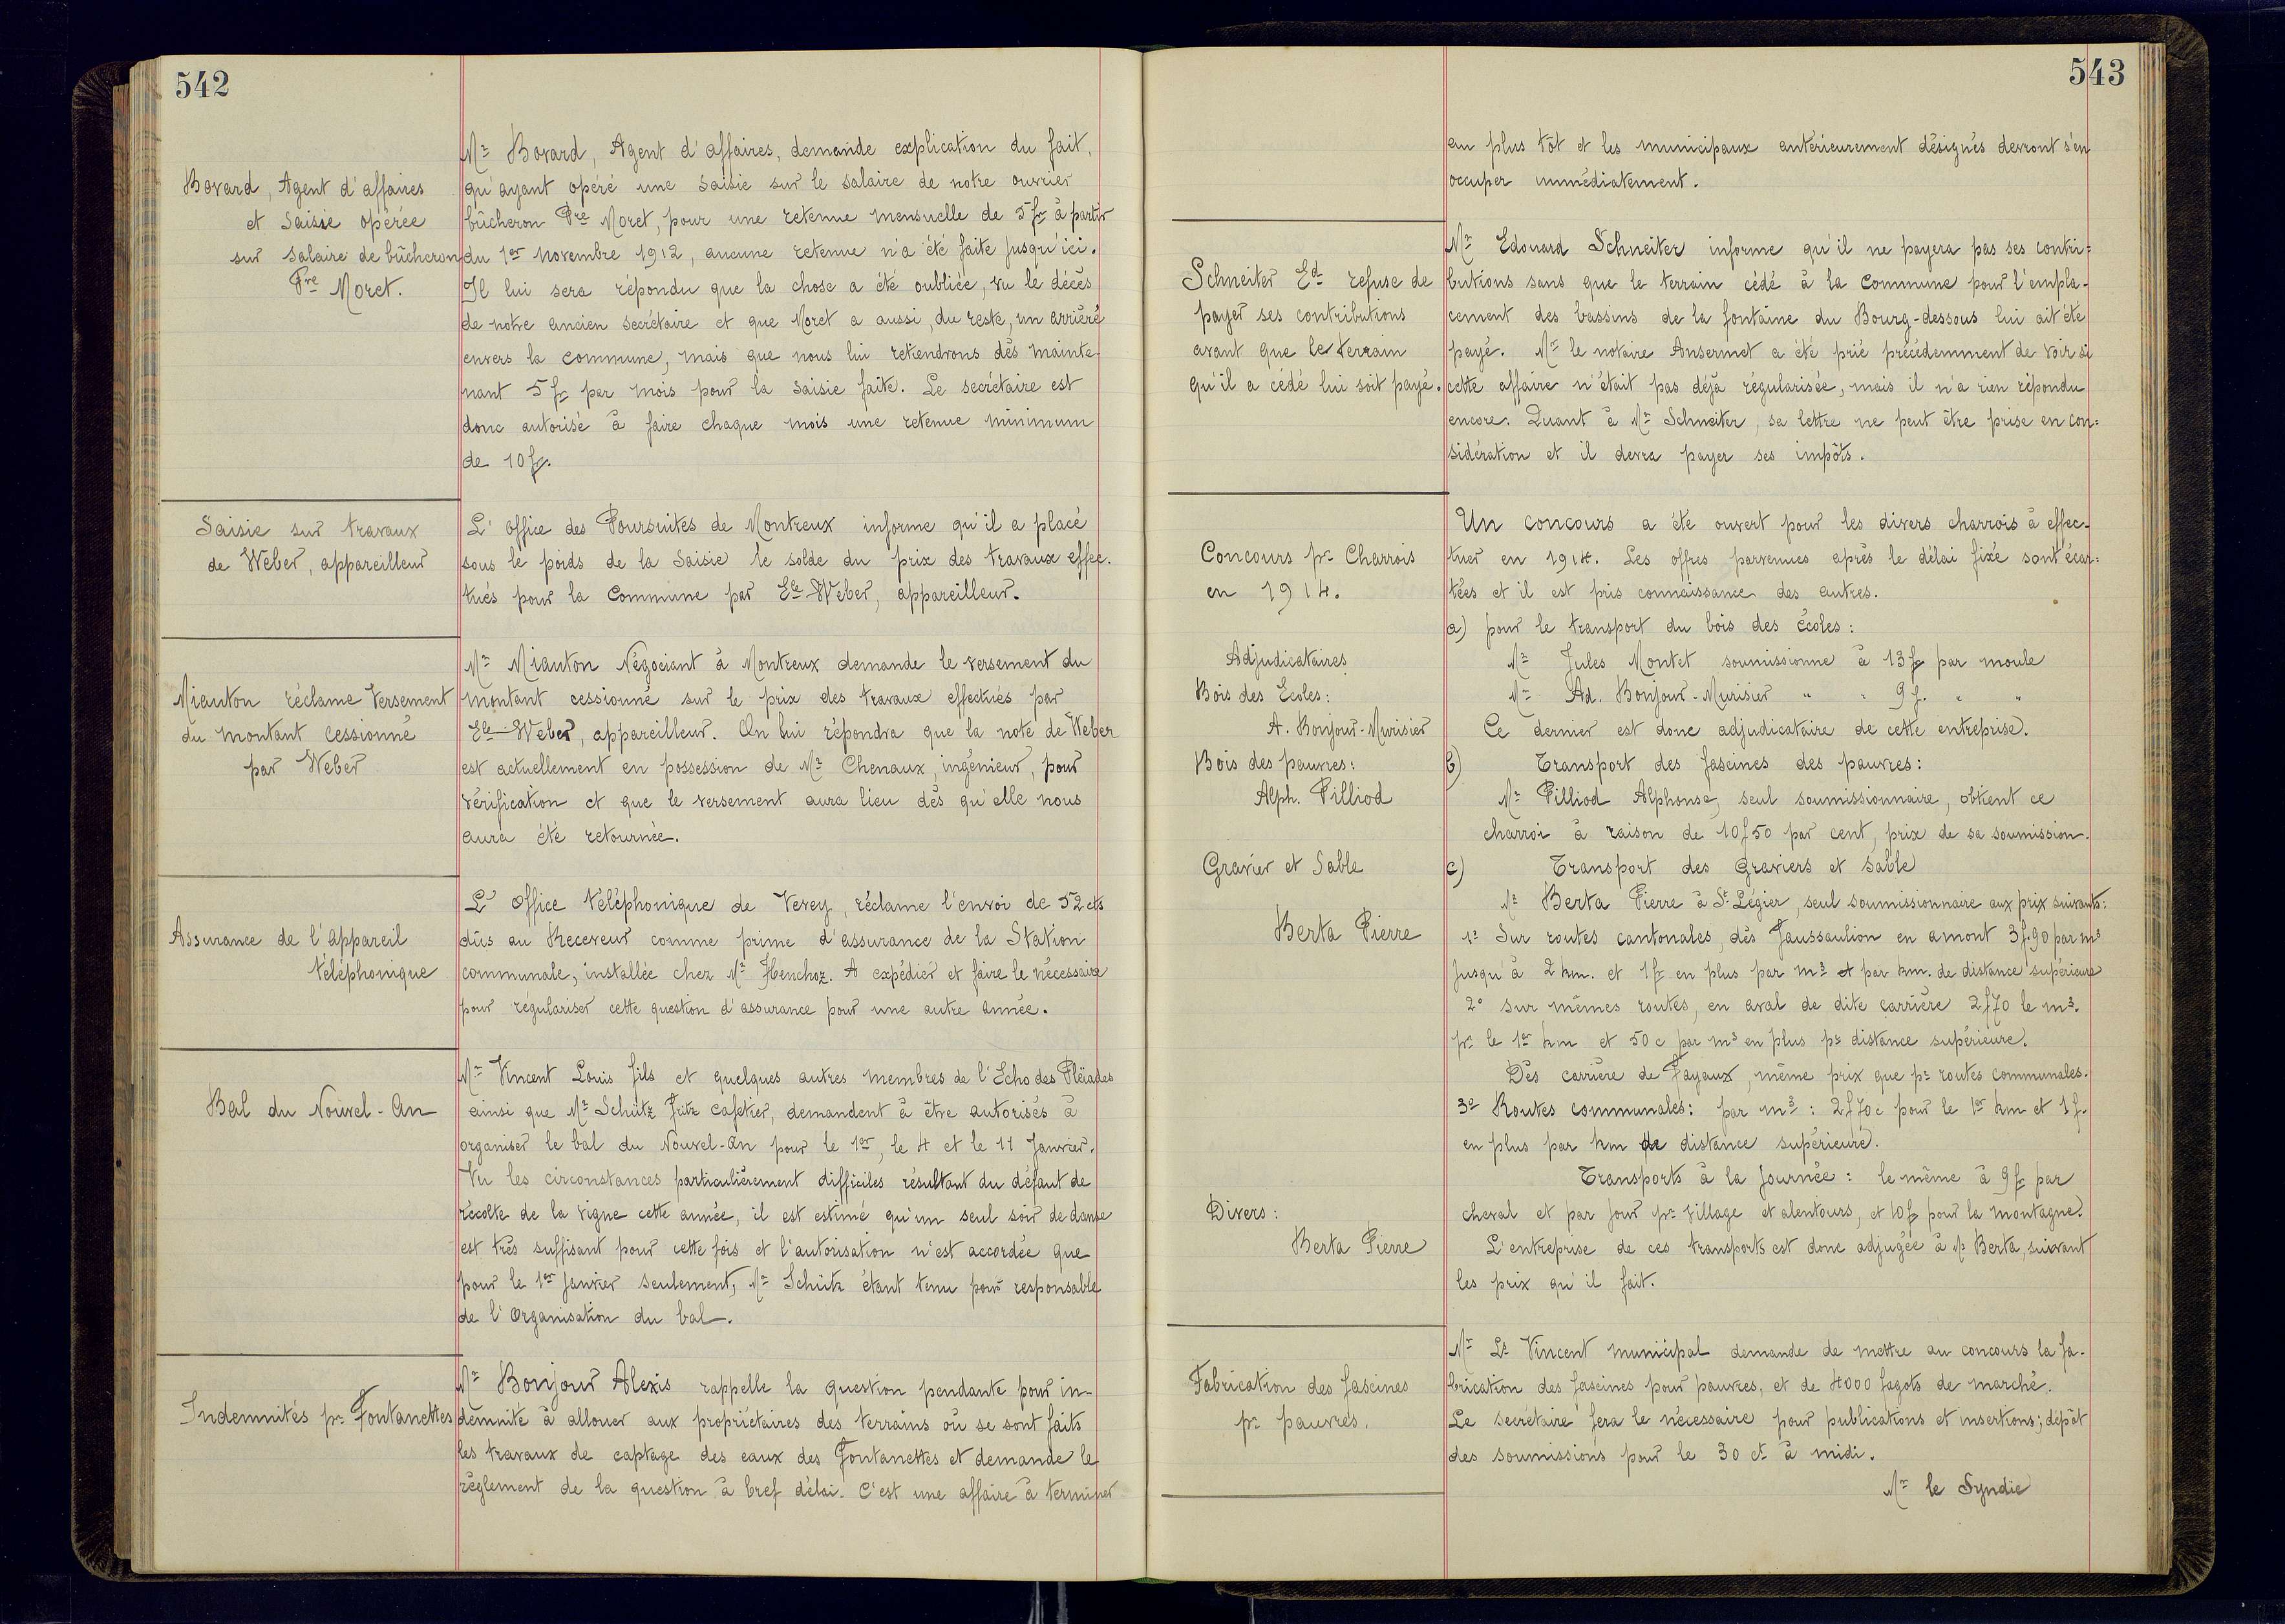 542
Bovard, Agent d'affaires
et Saisie opérée
sur salaire de bûcheron
Pre Moret.
Mr Bovard, Agent d'affaires, demande explication du fait,
qu'ayant opéré une saisie sur le salaire de notre ouvrier
bûcheron Pre Moret, pour une retenue mensuelle de 5 fr à partir
du 1er novembre 1912, aucune retenue n'a été faite jusqu'ici.
Il lui sera répondu que la chose a été oubliée, vu le décès
de notre ancien secrétaire et que Moret a aussi, du reste, un arriéré
envers la commune, mais que nous lui retiendrons dès mainte-
nant 5 fr par mois pour la saisie faite. Le secrétaire est
donc autorisé à faire chaque mois une retenue minimum
de 10 fr.
Saisie sur travaux
de Weber, appareilleur
L'Office des Poursuites de Montreux informe qu'il a placé
sous le poids de la saisie le solde du prix des travaux effec-
tués pour la Commune par Ele Weber, appareilleur.
Mianton réclame versement
du montant cessionné
par Weber
Mr Mianton Négociant à Montreux demande le versement du
montant cessionné sur le prix des travaux effectués par
Ele Weber, appareilleur. On lui répondra que la note de Weber
est actuellement en possession de Mr Chenaux, ingénieur, pour
vérification et que le versement aura lieu dès qu'elle nous
aura été retournée.
Assurance de l'appareil
téléphonique
L'Office téléphonique de Vevey, réclame l'envoi de 52 cts
dûs au Receveur comme prime d'assurance de la Station
communale, installée chez Mr Henchoz. A expédier et faire le nécessaire
pour régulariser cette question d'assurance pour une autre année.
Bal du Nouvel-An
Mr Vincent Louis fils et quelques autres membres de l'Echo des Pléiades
ainsi que Mr Schütz Fritz cafetier, demandent à être autorisés à
organiser le bal du Nouvel-An pour le 1er, le 4 et le 11 Janvier.
Vu les circonstances particulièrement difficiles résultant du défaut de
récolte de la vigne cette année, il est estimé qu'un seul soir de danse
est très suffisant pour cette fois et l'autorisation n'est accordée que
pour le 1er Janvier seulement, Mr Schütz étant tenu pour responsable
de l'Organisation du bal.
Indemnités pr Fontanettes
Mr Bonjour Alexis rappelle la question pendante pour in-
demnité à allouer aux propriétaires des terrains où se sont faits
les travaux de captage des eaux des Fontanettes et demande le
règlement de la question à bref délai. C'est une affaire à terminer
543
au plus tôt et les municipaux antérieurement désignés devront s'en
occuper immédiatement.
Schneiter Ed refuse de
payer ses contributions
avant que le terrain
qu'il a cédé lui soit payé.
Mr Edouard Schneiter informe qu'il ne payera pas ses contri=
butions sans que le terrain cédé à la Commune pour l'empla-
cement des bassins de la fontaine du Bourg-dessous lui ait été
payé. Mr le notaire Ansermet a été prié précédemment de voir si
cette affaire n'était pas déjà régularisée, mais il n'a rien répondu
encore. Quant à Mr Schneiter, sa lettre ne peut être prise en con=
sidération et il devra payer ses impôts.
Concours pr Charrois
en 1914.
Un concours a été ouvert pour les divers charrois à effec-
tuer en 1914. Les offres parvenues après le délai fixé sont écar=
tées et il est pris connaissance des autres.
a) pour le transport du bois des Écoles:
Adjudicataires
Mr Jules Montet soumissionne à 13 fr par moule
Bois des Ecoles:
Mr Ad. Bonjour-Murisier " " 9 f. " "
A. Bonjour-Murisier
Ce dernier est donc adjudicataire de cette entreprise.
Bois des pauvres:
b) Transport des fascines des pauvres:
Alph. Pilliod
Mr Pilliod Alphonse, seul soumissionnaire, obtient ce
charroi à raison de 10 f 50 par cent, prix de sa soumission.
Gravier et Sable
c) Transport des Graviers et sable
Mr Berta Pierre à St Légier, seul soumissionnaire aux prix suivants:
Berta Pierre
1° Sur routes cantonales, dès Jaussaulion en amont 3 f. 90 par m3
jusqu'à 2 km. et 1 fr en plus par m3 et par km. de distance supérieure
2° sur mêmes routes, en aval de dite carrière 2 f 70 le m3.
pr le 1er km et 50 c par m3 en plus pr distance supérieure.
Dès carrière de Fayaux, même prix que pr routes communales.
3° Routes communales: par m3: 2 f 70 c pour le 1er km et 1 f.
en plus par km de distance supérieure.
Transports à la Journée: le même à 9 fr par
Divers:
cheval et par jour pr village et alentours, et 10 fr pour la montagne.
Berta Pierre
L'entreprise de ces transports est donc adjugée à Mr Berta, suivant
les prix qu'il fait.
Fabrication des fascines
pr pauvres.
Mr Ls Vincent municipal demande de mettre au concours la fa-
brication des fascines pour pauvres, et de 4000 fagots de marché.
Le secrétaire fera le nécessaire pour publications et insertions; dépôt
des soumissions pour le 30 ct à midi.
Mr le Syndic